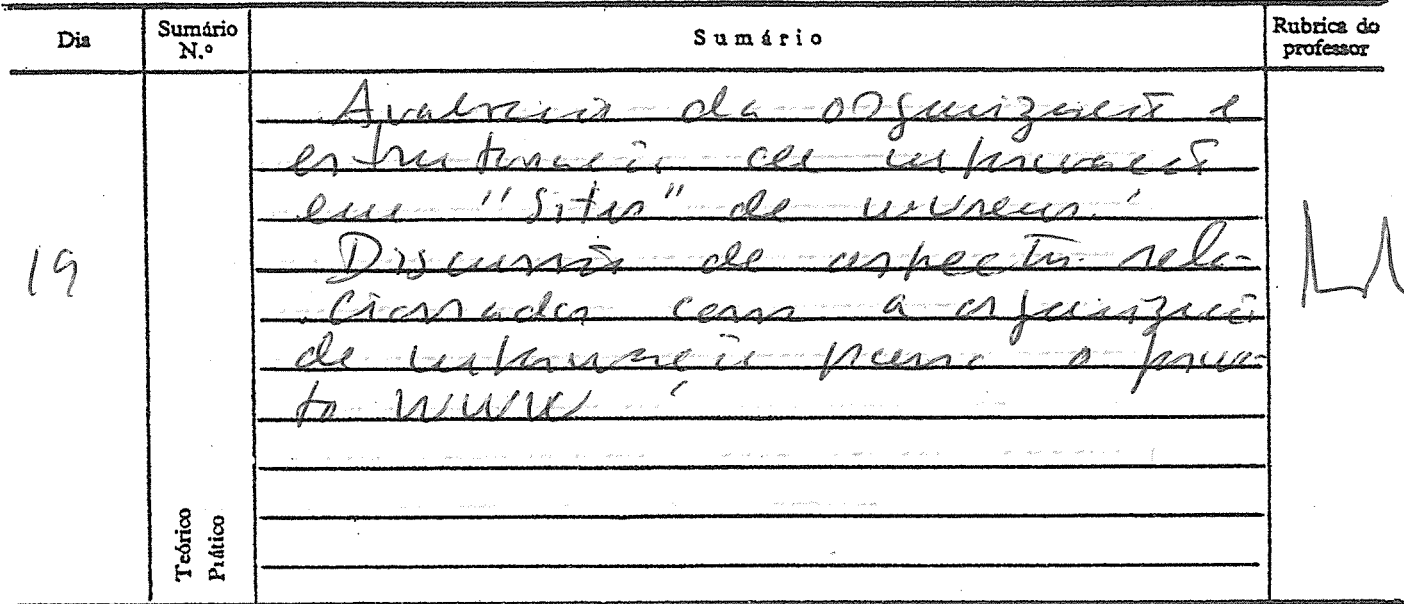 Dia
Sumário N.º
Sumário
Rubrica do professor
19
Avaliação da organização e
estruturação da informação
em "Sites" de museus.
Discussão de aspectos rela-
cionados com a organização
de informação para o
to WWW
Teórico
Prático